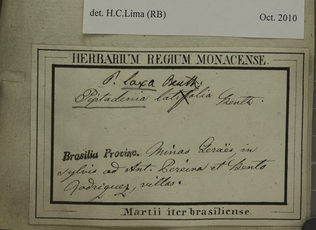 det. H.C.Lima (RB)
Oct. 2010
HERBARIUM REGIUM MONACENSE.
P. laxa Benth.
Piptadenia latifolia Benth.
Brasilia Provinc. Minas Geraës, in
sylvis ad Ant. Pereira et Bento
Rodriguez, villas.
Martii iter brasiliense.